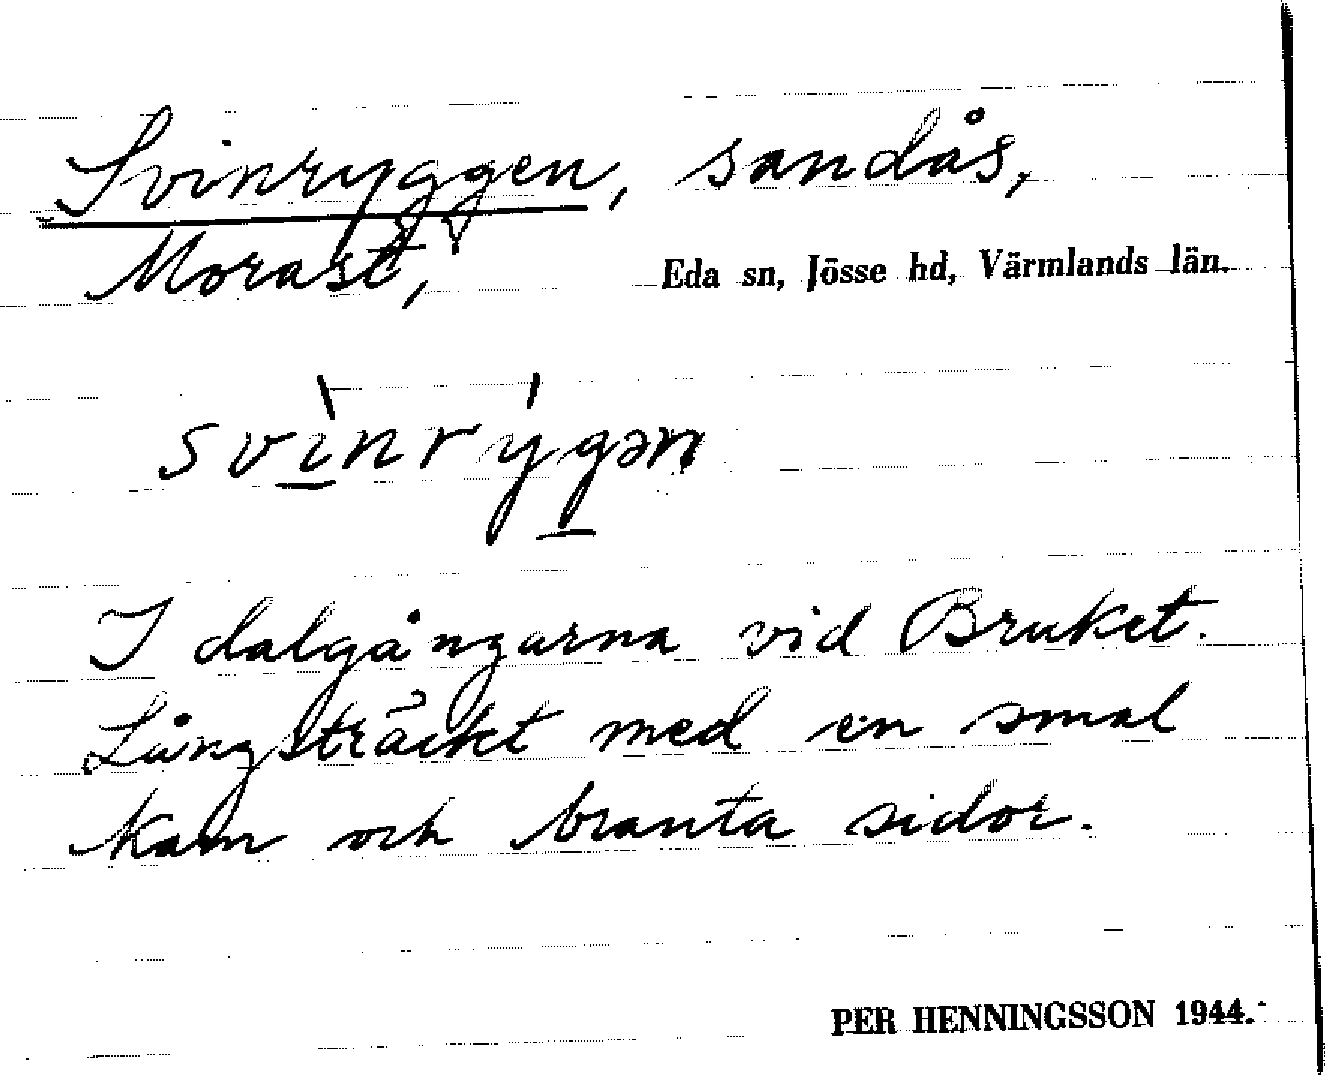 Svinryggen, sandås,
Morast, Eda sn, Jösse hd, Värmlands län.
svìnrýgən
I dalgångarna vid Bruket.
Långsträckt med en smal
kam och branta sidor.
PER HENNINGSSON 1944.